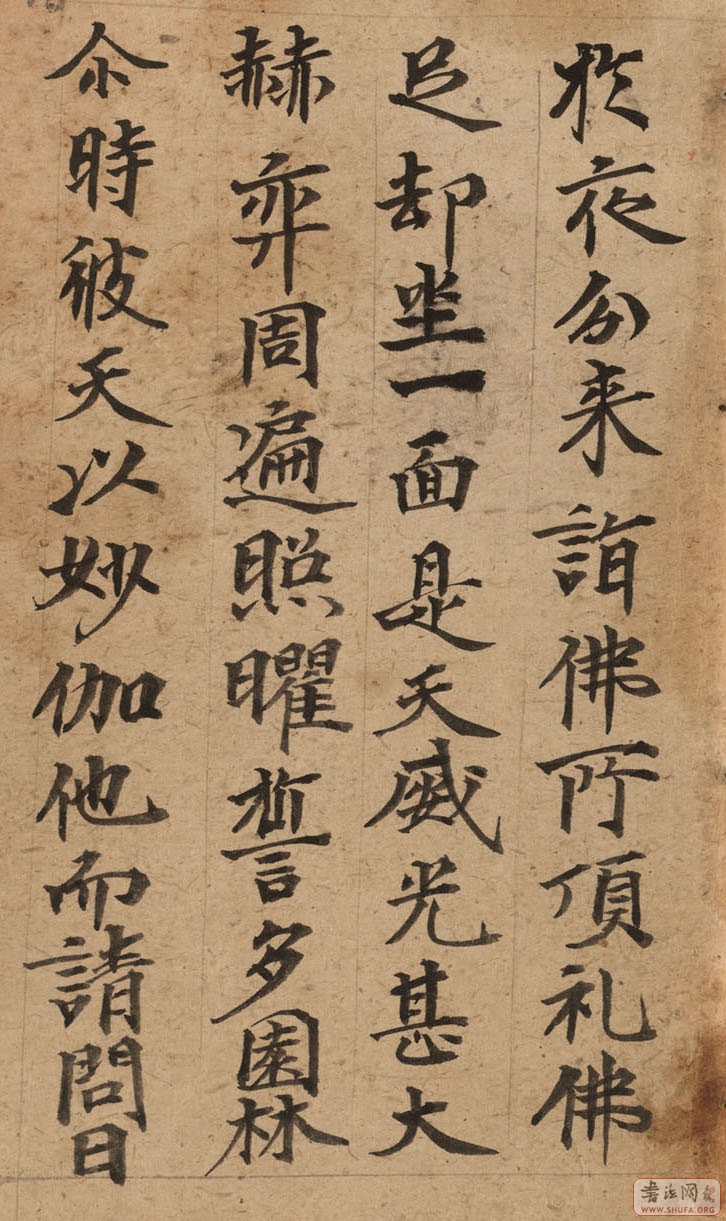 於夜分来詣佛所頂礼佛
足却坐一面是天威光甚大
赫弈周遍照曜誓多園林
尒時彼天以妙伽他而請問曰
书法网
WWW.SHUFA.ORG